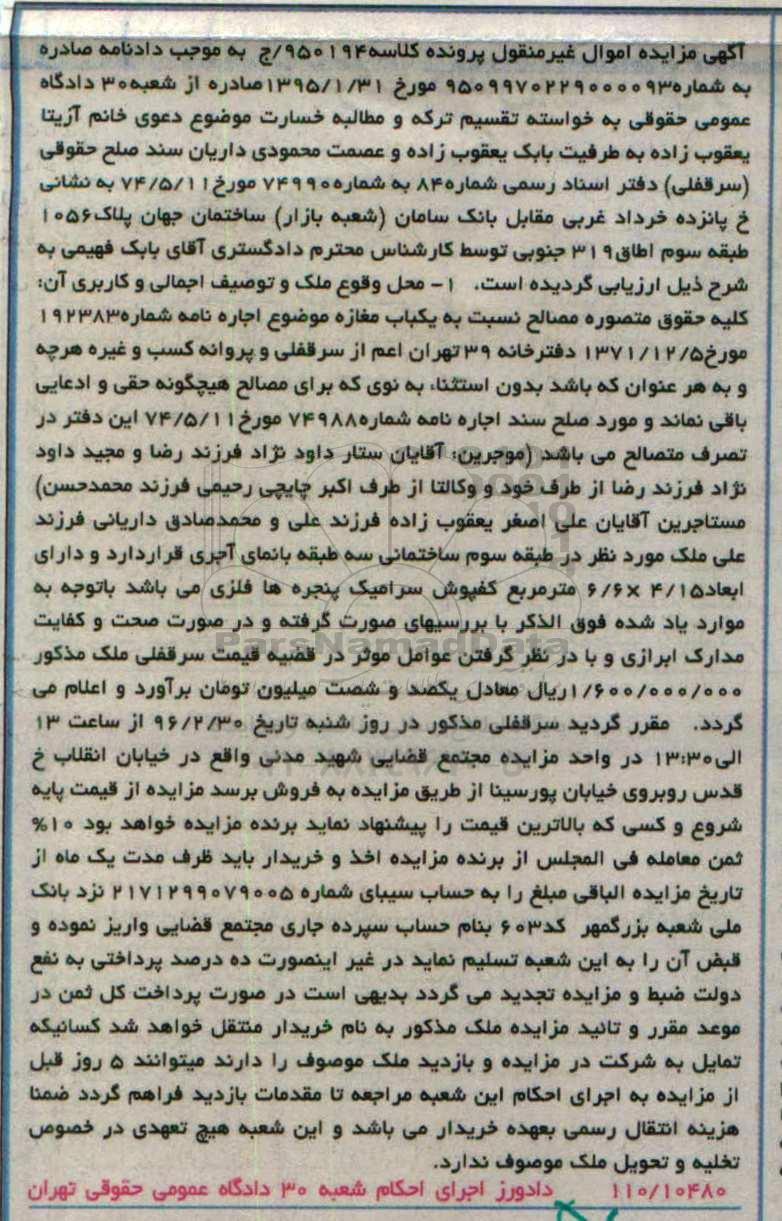 آگهی مزایده اموال غیرمنقول پرونده کلاسه۹۵۰۱۹۴/ج به موجب دادنامه صادره
به شماره۹۵۰۹۹۷۰۲۲۹۰۰۰۰۹۳ مورخ ۱۳۹۵/۱/۳۱صادره از شعبه۳۰ دادگاه
عمومی حقوقی به خواسته تقسیم ترکه و مطالبه خسارت موضوع دعوی خانم آزیتا
یعقوب زاده به طرفیت بابک یعقوب زاده و عصمت محمودی داریان سند صلح حقوقی
(سرقفلی) دفتر اسناد رسمی شماره۸۴ به شماره۷۴۹۹۰ مورخ۷۴/۵/۱۱ به نشانی
خ پانزده خرداد غربی مقابل بانک سامان (شعبه بازار) ساختمان جهان پلاک۱۰۵۶
طبقه سوم اطاق۳۱۹ جنوبی توسط کارشناس محترم دادگستری آقای بابک فهیمی به
شرح ذیل ارزیابی گردیده است. ۱- محل وقوع ملک و توصیف اجمالی و کاربری آن:
کلیه حقوق متصوره مصالح نسبت به یکباب مغازه موضوع اجاره نامه شماره۱۹۲۳۸۳
مورخ۱۳۷۱/۱۲/۵ دفترخانه ۳۹تهران اعم از سرقفلی و پروانه کسب و غیره هرچه
و به هر عنوان که باشد بدون استثنا، به نوی که برای مصالح هیچگونه حقی و ادعایی
باقی نماند و مورد صلح سند اجاره نامه شماره۷۴۹۸۸ مورخ۷۴/۵/۱۱ این دفتر در
تصرف متصالح می باشد (موجرین: آقایان ستار داود نژاد فرزند رضا و مجید داود
نژاد فرزند رضا از طرف خود و وکالتا از طرف اکبر چایچی رحیمی فرزند محمدحسن)
مستاجرین آقایان علی اصغر یعقوب زاده فرزند علی و محمدصادق داریانی فرزند
علی ملک مورد نظر در طبقه سوم ساختمانی سه طبقه بانمای آجری قراردارد و دارای
ابعاد۴/۱۵ ×۶/۶ مترمربع کفپوش سرامیک پنجره ها فلزی می باشد باتوجه به
موارد یاد شده فوق الذکر با بررسیهای صورت گرفته و در صورت صحت و کفایت
مدارک ابرازی و با در نظر گرفتن عوامل موثر در قضیه قیمت سرقفلی ملک مذکور
۱/۶۰۰/۰۰۰/۰۰۰ریال معادل یکصد و شصت میلیون تومان برآورد و اعلام می
گردد. مقرر گردید سرقفلی مذکور در روز شنبه تاریخ ۹۶/۲/۳۰ از ساعت ۱۳
الی۱۳:۳۰ در واحد مزایده مجتمع قضایی شهید مدنی واقع در خیابان انقلاب خ
قدس روبروی خیابان پورسینا از طریق مزایده به فروش برسد مزایده از قیمت پایه
شروع و کسی که بالاترین قیمت را پیشنهاد نماید برنده مزایده خواهد بود ۱۰%
ثمن معامله فی المجلس از برنده مزایده اخذ و خریدار باید ظرف مدت یک ماه از
تاریخ مزایده الباقی مبلغ را به حساب سیبای شماره ۲۱۷۱۲۹۹۰۷۹۰۰۵ نزد بانک
ملی شعبه بزرگمهر کد۶۰۳ بنام حساب سپرده جاری مجتمع قضایی واریز نموده و
قبض آن را به این شعبه تسلیم نماید در غیر اینصورت ده درصد پرداختی به نفع
دولت ضبط و مزایده تجدید می گردد بدیهی است در صورت پرداخت کل ثمن در
موعد مقرر و تائید مزایده ملک مذکور به نام خریدار منتقل خواهد شد کسانیکه
تمایل به شرکت در مزایده و بازدید ملک موصوف را دارند میتوانند ۵ روز قبل
از مزایده به اجرای احکام این شعبه مراجعه تا مقدمات بازدید فراهم گردد ضمنا
هزینه انتقال رسمی بعهده خریدار می باشد و این شعبه هیچ تعهدی در خصوص
تخلیه و تحویل ملک موصوف ندارد.
۱۱۰/۱۰۴۸۰ دادورز اجرای احکام شعبه ۳۰ دادگاه عمومی حقوقی تهران
ParsNamadData